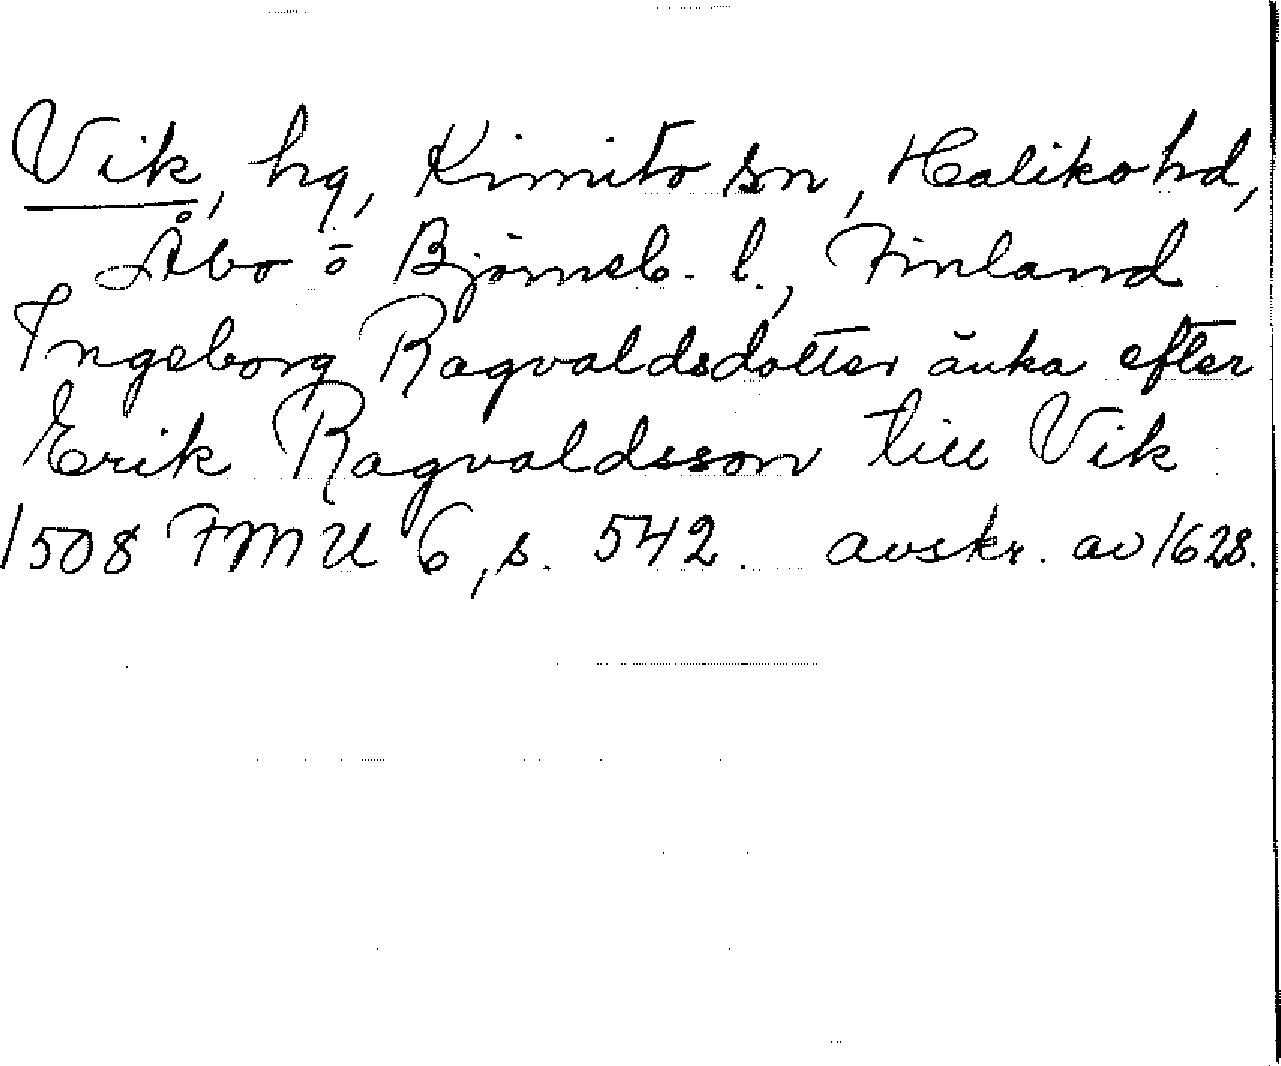 Vik, hg, Kimito sn, Haliko hd,
Åbo o Björneb. l., Finland
Ingeborg Ragvaldsdotter änka efter
Erik Ragvaldsson till Vik
1508 FMU 6, s. 542. avskr. av 1628.